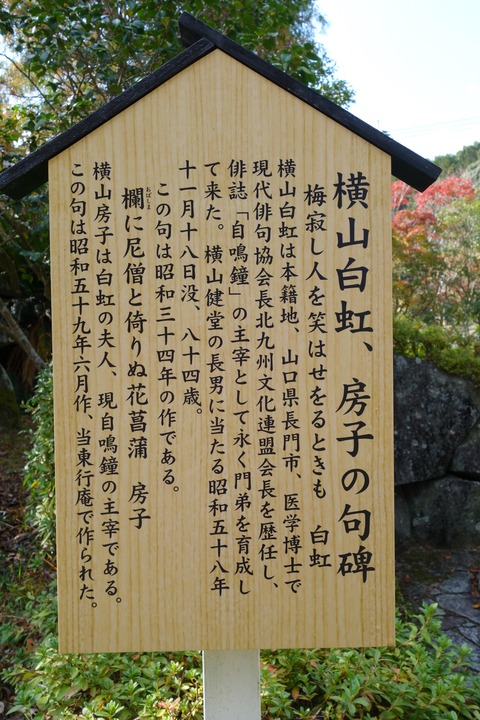 横山白虹、房子の句碑
梅寂し人を笑はせをるときも　白虹
横山白虹は本籍地、山口県長門市、医学博士で
現代俳句協会長北九州文化連盟会長を歴任し、
俳誌「自鳴鐘」の主宰として永く門弟を育成し
て来た。横山健堂の長男に当たる昭和五十八年
十一月十八日没、八十四歳。
この句は昭和三十四年の作である。
おばしま
欄に尼僧と倚りぬ花菖蒲　房子
横山房子は白虹の夫人、現自鳴鐘の主宰である。
この句は昭和五十九年六月作、当東行庵で作られた。